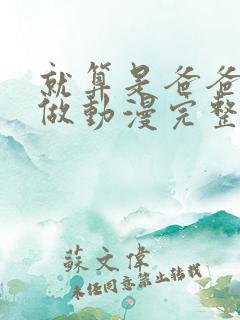 就算是爸爸
做動漫完整
蘇文偉
未經同意禁止转载